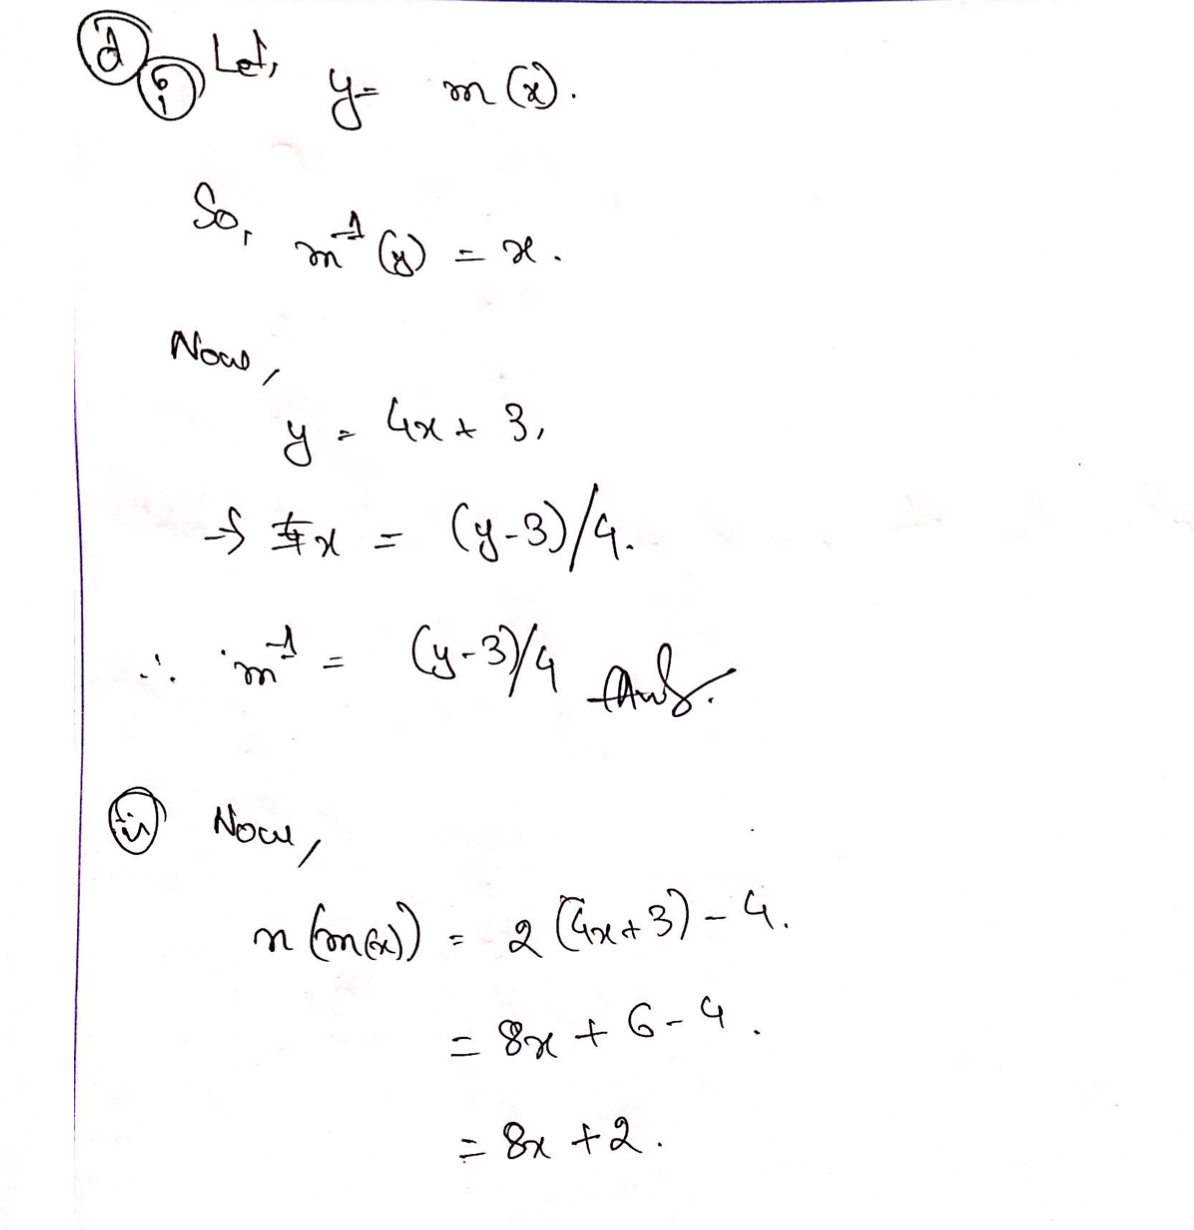 d i Let, y = m(x).
So, m⁻¹(y) = x.
Now,
y = 4x + 3,
→ x = (y-3)/4.
∴ m⁻¹ = (y-3)/4 Ans.
ii Now,
n(m(x)) = 2(4x+3) - 4.
= 8x + 6 - 4.
= 8x + 2.